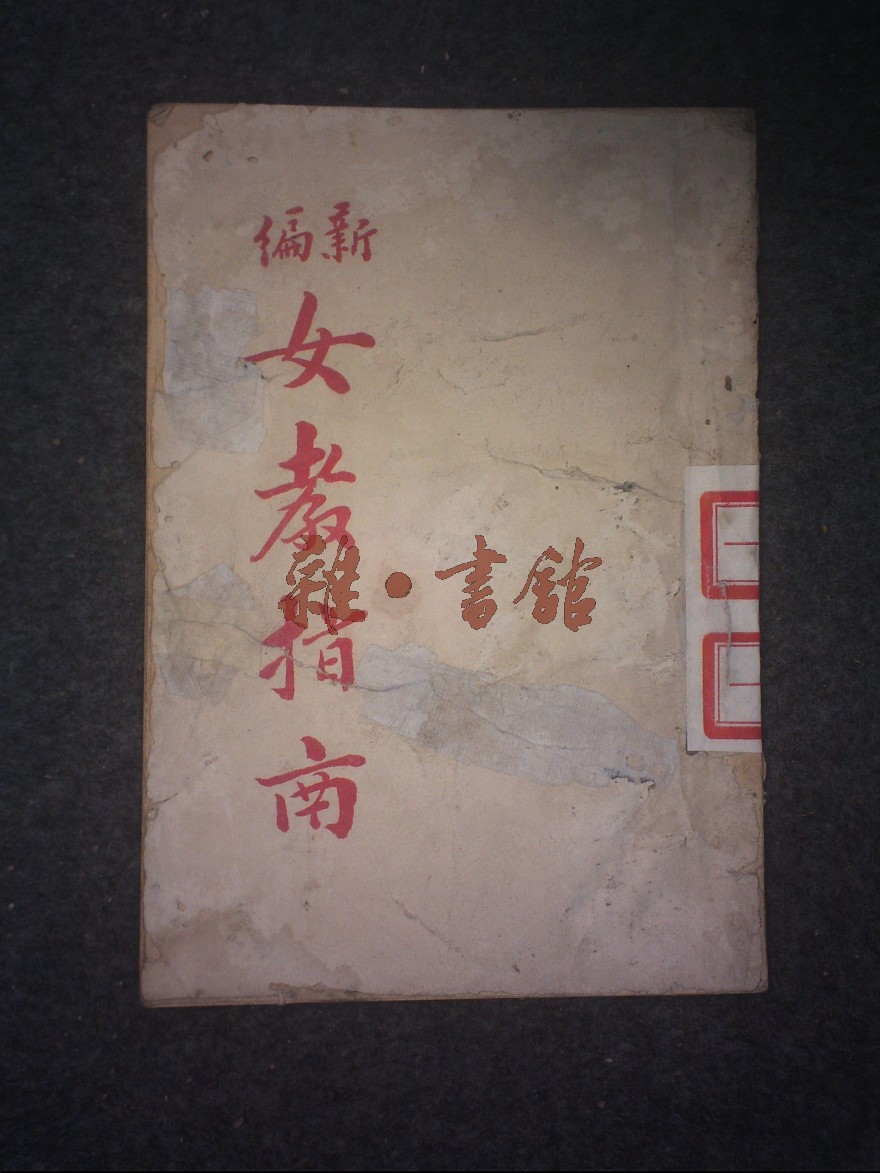 新編
女教指南
雜·書館